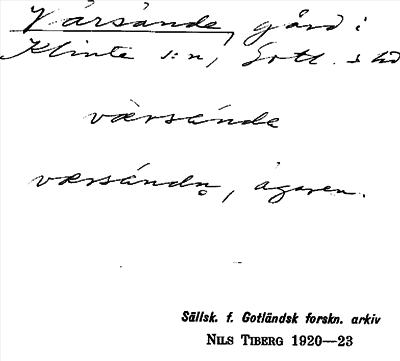 Vårsände, gård i
Klinte s:n, Gotl.
værsände
værsándn̥, ägaren.
Sällsk. f. Gotländsk forskn. arkiv
NILS TIBERG 1920—23